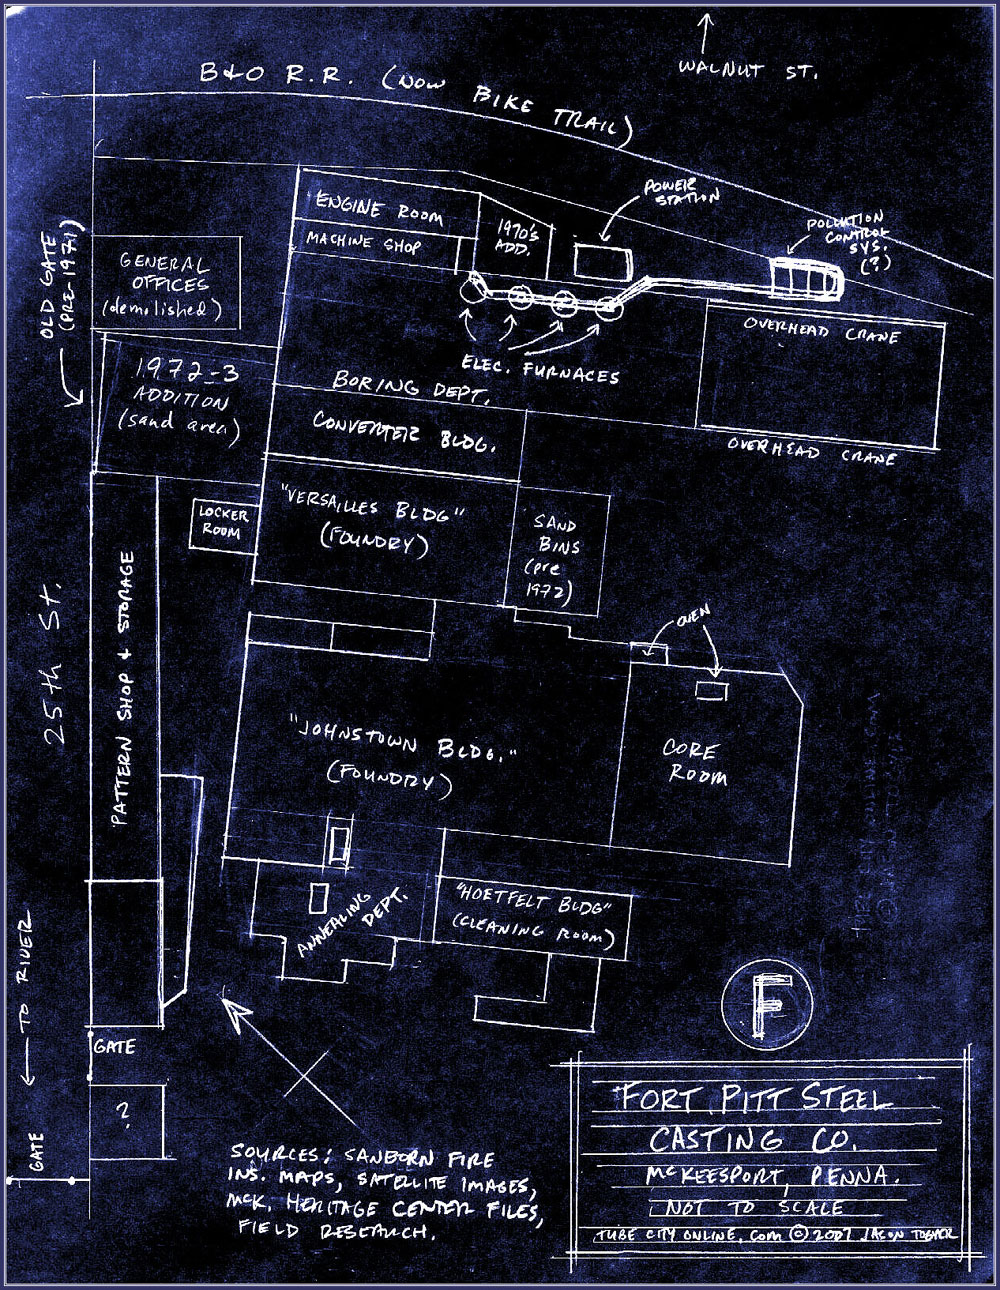 WALNUT ST.
B&O R.R. (NOW BIKE TRAIL)
POWER
STATION
POLLUTION
CONTROL
SYS.
(?)
"ENGINE ROOM
MACHINE SHOP
1970's
ADD.
OLD GATE
(PRE-1971)
GENERAL
OFFICES
(demolished)
OVERHEAD CRANE
ELEC. FURNACES
1972-3
ADDITION
(sand area)
BORING DEPT.
CONVERTER BLDG.
OVERHEAD CRANE
"VERSAILLES BLDG"
(FOUNDRY)
LOCKER
ROOM
SAND
BINS
(pre
1972)
25th St.
PATTERN SHOP & STORAGE
OVEN
"JOHNSTOWN BLDG."
(FOUNDRY)
CORE
ROOM
ANNEALING DEPT.
"HOETFELT BLDG"
(CLEANING ROOM)
TO RIVER
GATE
?
GATE
F
SOURCES: SANBORN FIRE
INS. MAPS, SATELLITE IMAGES,
MCK. HERITAGE CENTER FILES,
FIELD RESEARCH.
FORT PITT STEEL
CASTING CO.
McKEESPORT, PENNA.
NOT TO SCALE
TUBE CITY ONLINE.com © 2007 JASON TOGYER